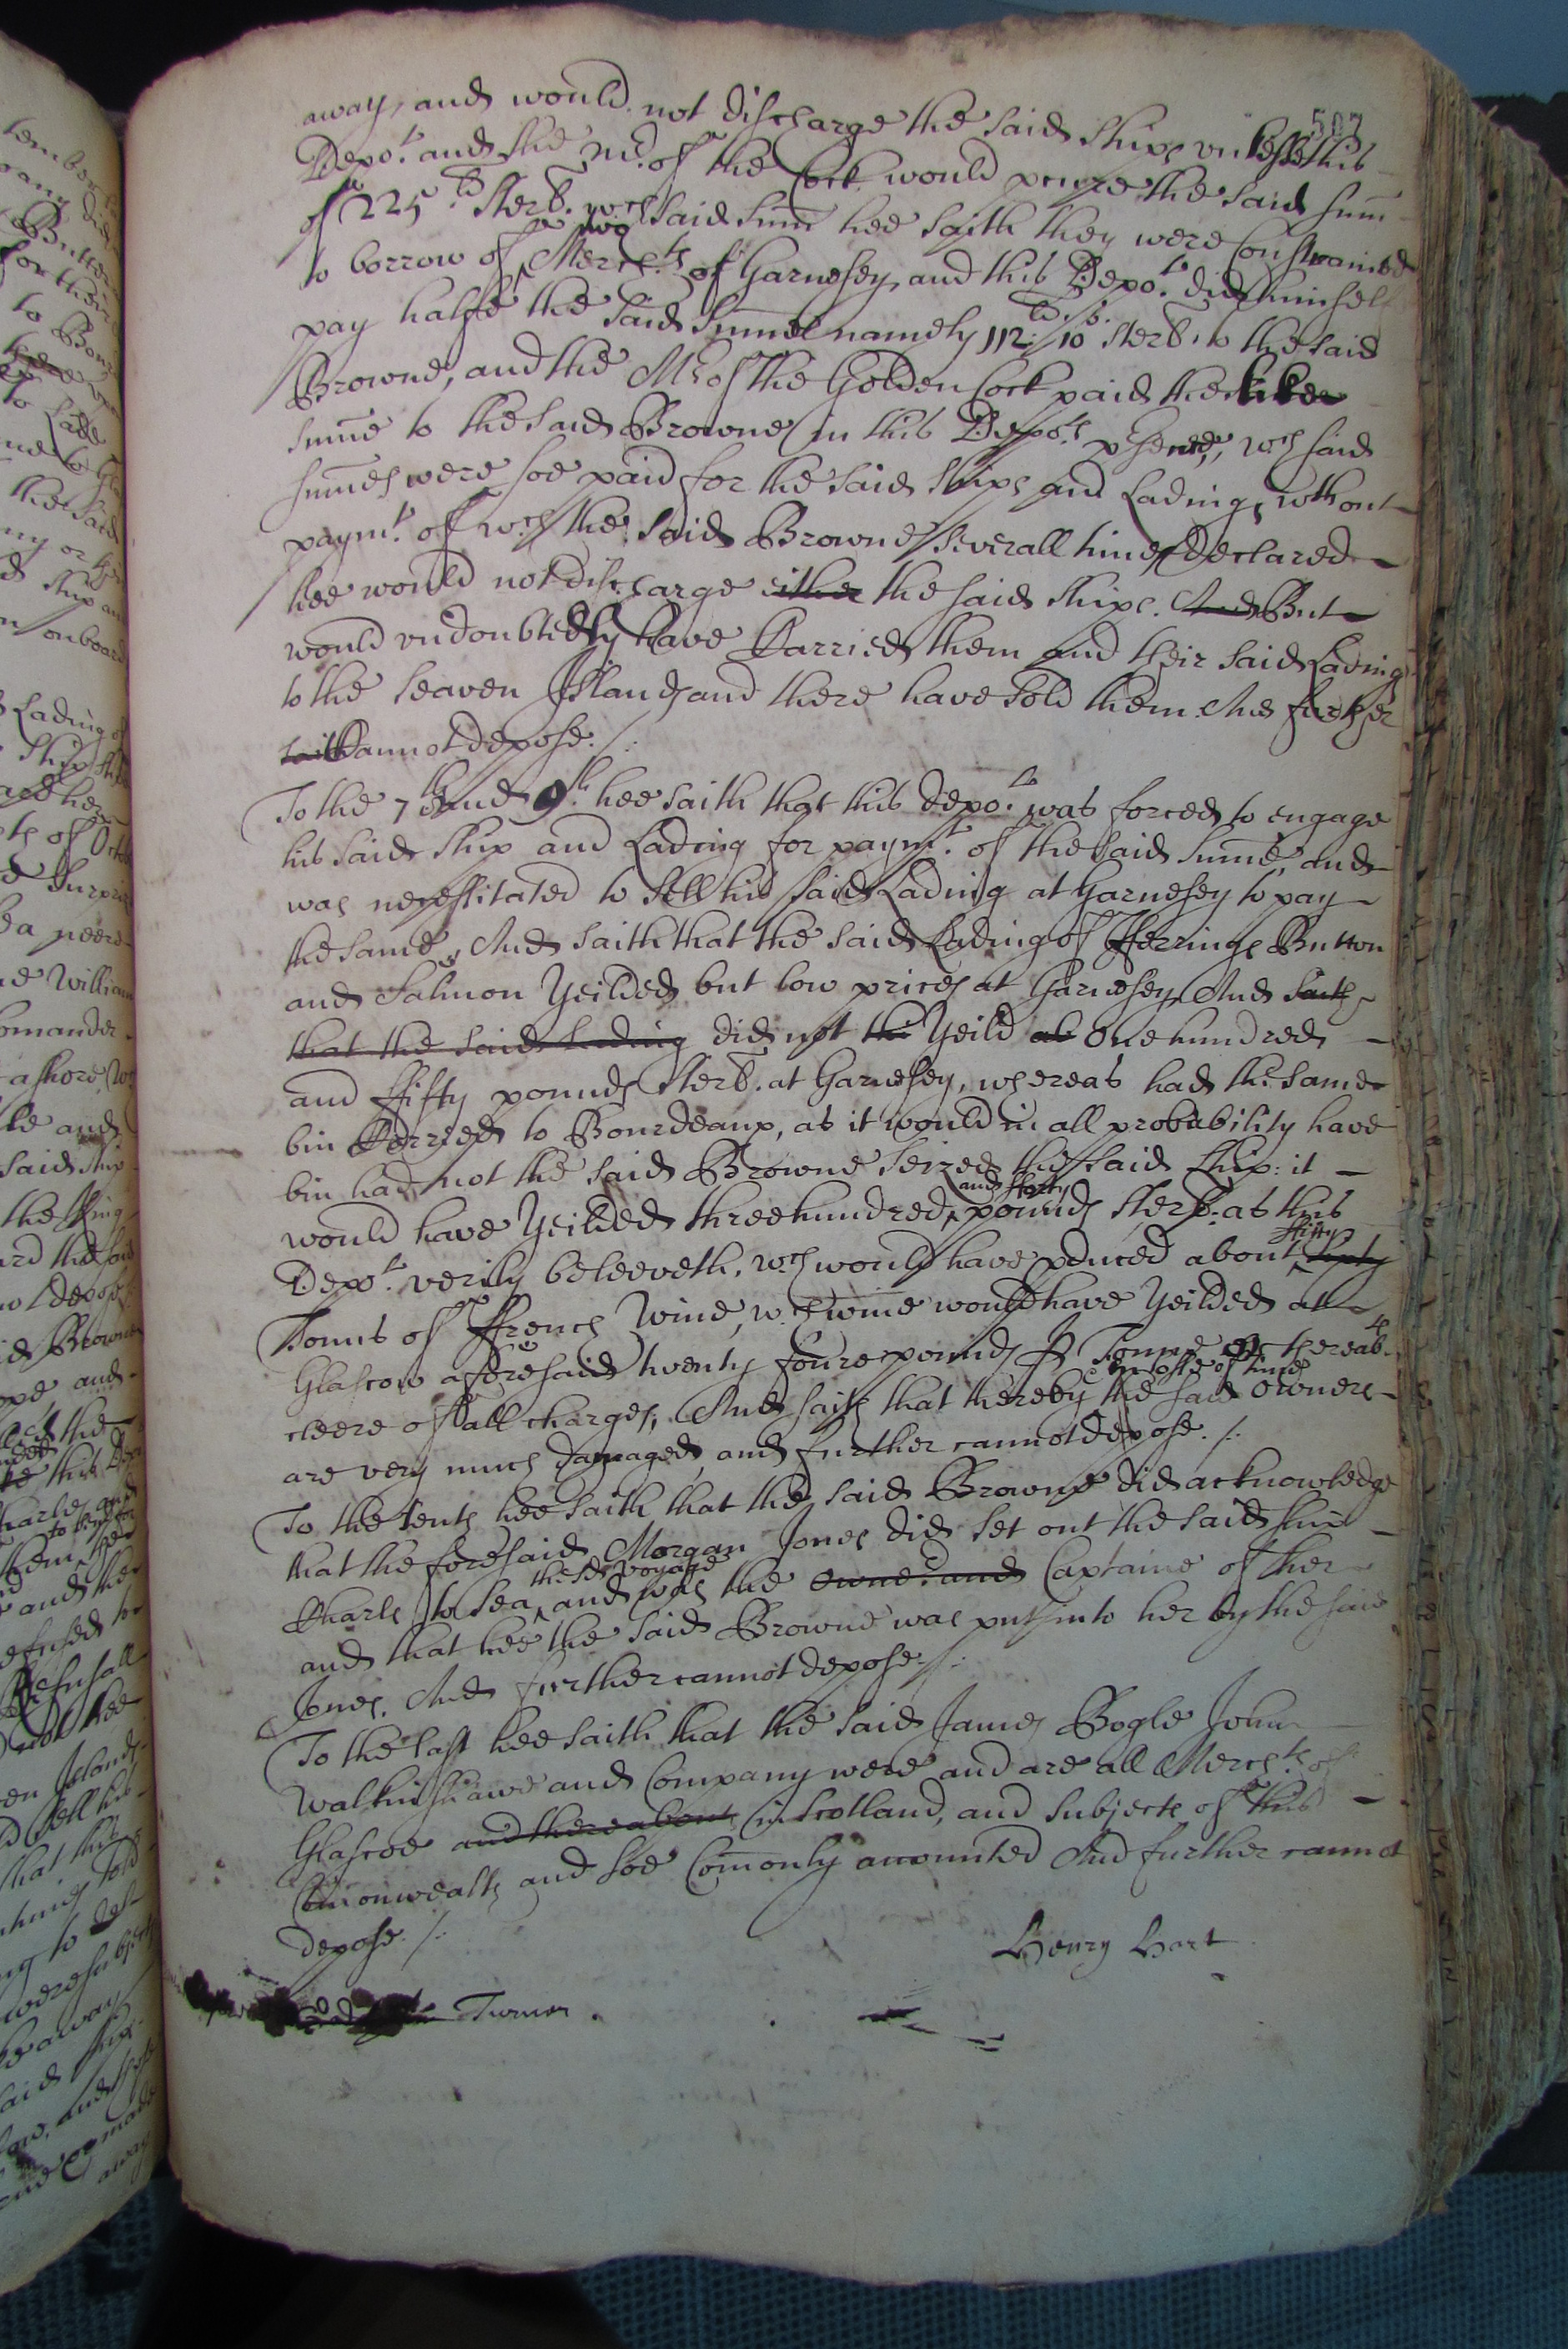 507
away, and would not discharge the said shipps unlesse this
Depo.t and the m.r of the Cock would procure the said sum
of 225.li sterl. w.ch said sum hee saith they were Constrained
to borrow of two Merch.ts of Garnesey, and this Depo.t did himself
pay halfe the said summe namely 112.li 10.s sterl. to the said
Browne, and the M.r of the Golden Cock paid the like
summe to the said Browne in this Depo.ts p'sence, w.ch said
summes were soe paid for the said shipps and Lading, without
paym.t of w.ch the said Browne severall times declared
hee would not discharge either the said shipps. And But
would undoubtedly have Carried them and their said Lading
to the seaven Islands and there have sold them. And further
saith cannot depose. /.
To the 7.th and 9.th hee saith that this depo.t was forced to engage
his said ship and Lading for paym.t of the said summe, and
was necessitated to sell his said Lading at Garnesey to pay
the same, And saith that the said Lading of Herrings Butter
and Salmon Yeilded but low prices at Garnesey, And saith
that the said Lading did not the Yeild ab One hundred
and fifty pounds sterl. at Garnesey, whereas had the same
bin Carried to Bourdeaux, as it would in all probability have
bin had not the said Browne seized the said ship: it
would have Yeilded three hundred and forty pounds sterl. as this
Depo.t verily beleeveth, w.ch would have p'duced about fifty
Tonns of French Wine, w.ch wine would have Yeilded at
Glascow aforesaid twenty foure pounds P Tonne or thereab.ts
cleere of all charges, And saith that thereby & losse of time the said owners
are very much damaged, and further cannot depose. /.
To the tenth hee saith that the said Browne did acknowledge
that the foresaid Morgan Jones did set out the said ship
Charles to sea the s.d voyage and was the owner and Captaine of her
and that hee the said Browne was put into her by the said
Jones, And further cannot depose. /.
To the last hee saith that the said James Bogle John
Walkinshawe and Company were and are all Merch.ts of
Glascoe and thereabout in Scotland, and subjects of this
Comonwealth and soe Comonly accounted And further cannot
depose. /.
Henry Hart
Turner.